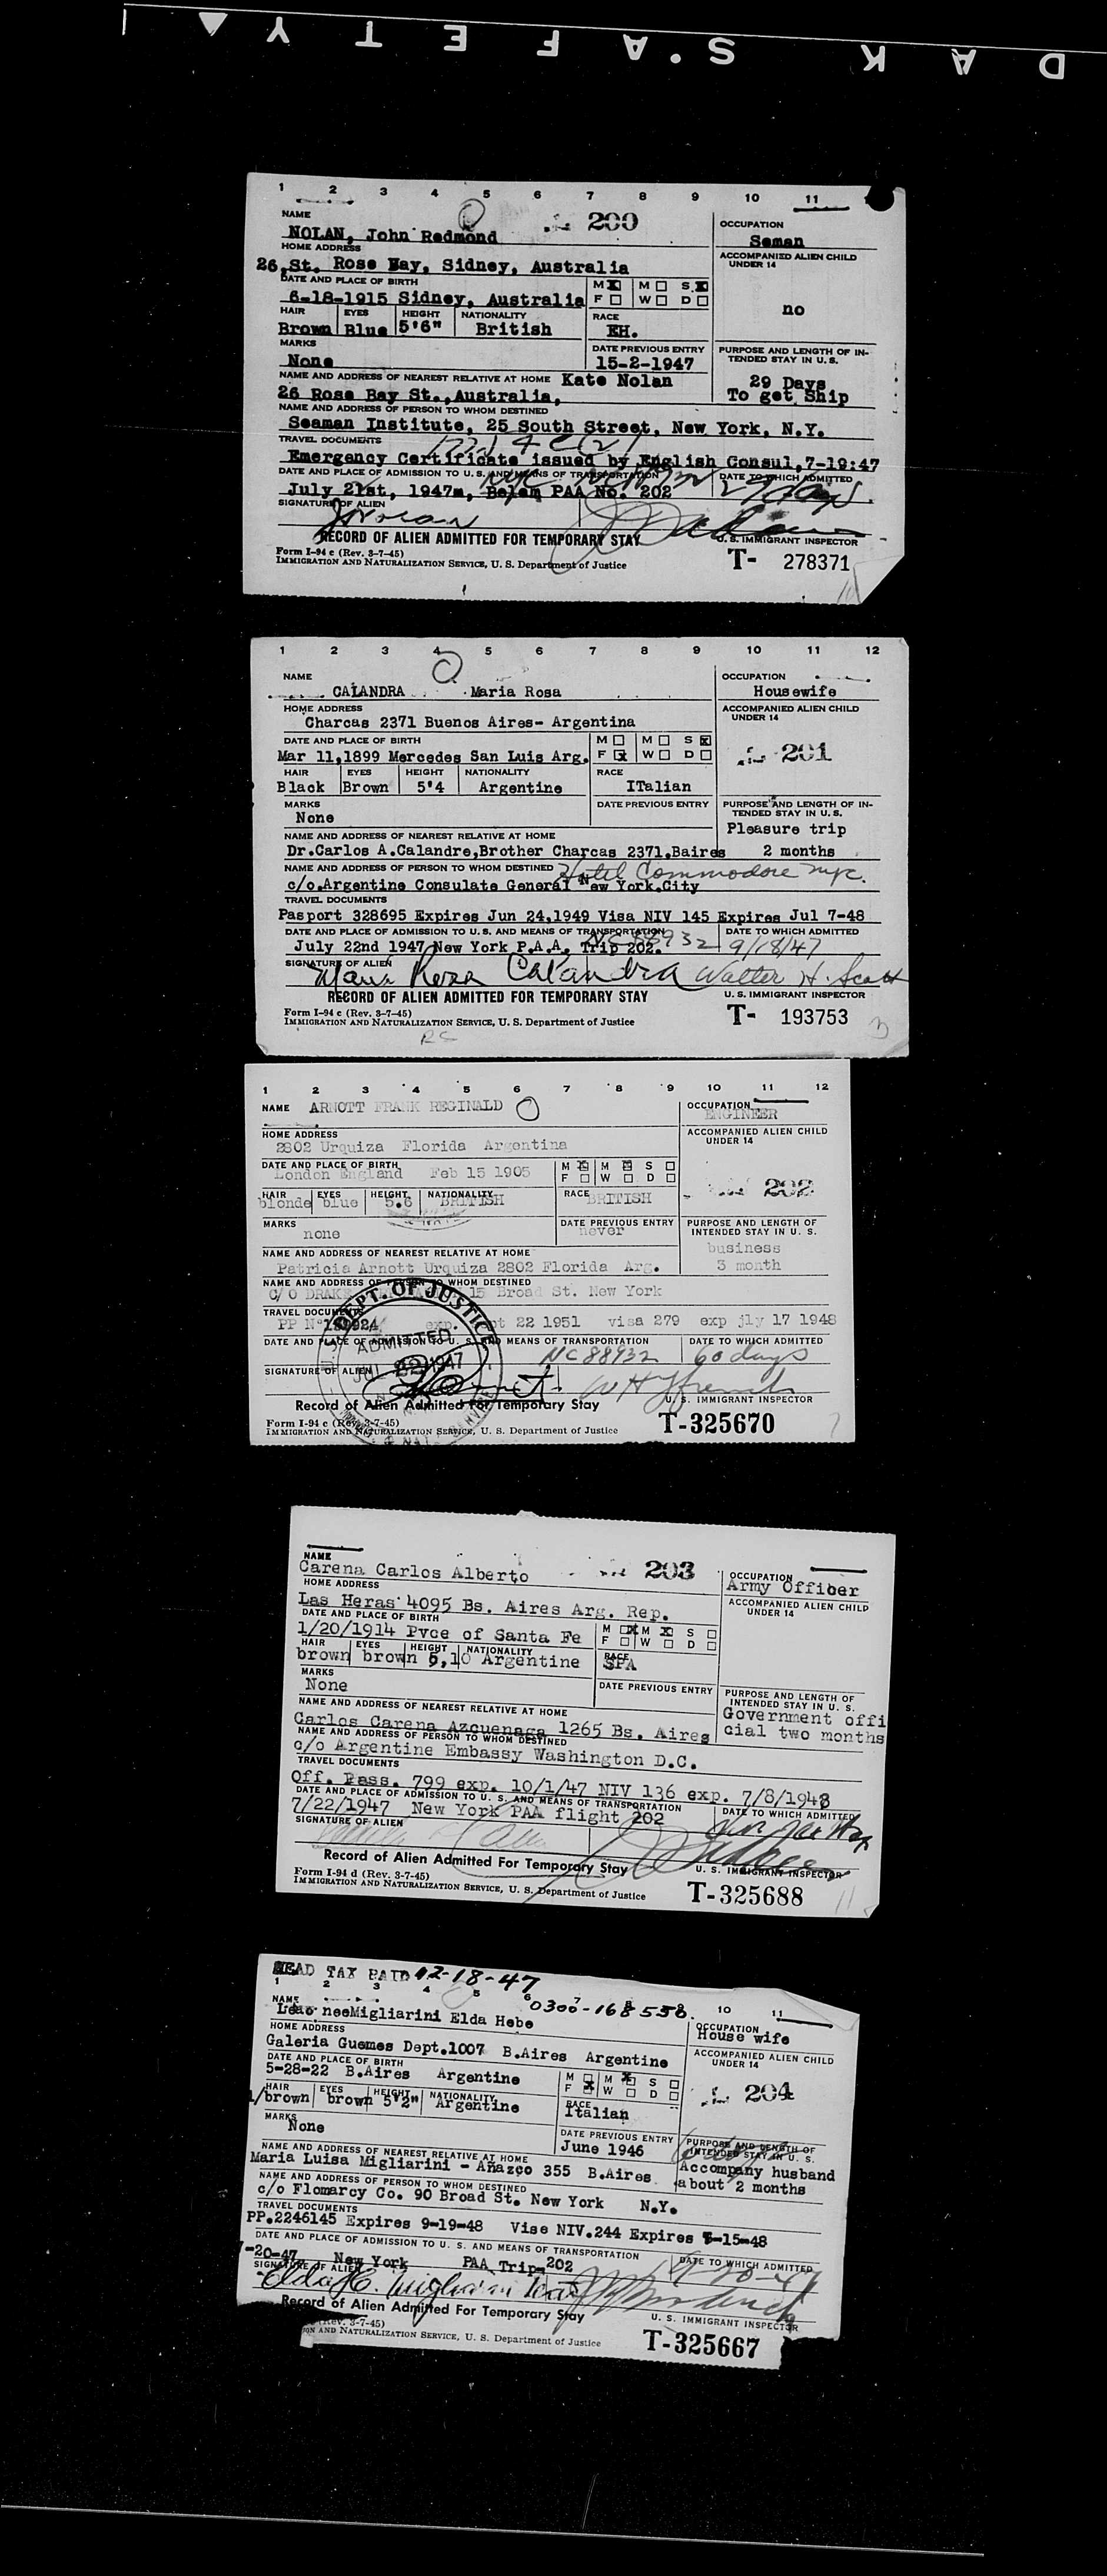 KODAK SAFETY
1 2 3 4 5 6 7 8 9 10 11
NAME
NOLAN, John Redmond
200
OCCUPATION
Seman
HOME ADDRESS
26,St. Rose Bay, Sidney, Australia
ACCOMPANIED ALIEN CHILD UNDER 14
no
DATE AND PLACE OF BIRTH
6-18-1915 Sidney, Australia
M M S
F W D
HAIR EYES HEIGHT NATIONALITY RACE
Brown Blue 5'6" British EH.
MARKS
None
DATE PREVIOUS ENTRY
15-2-1947
PURPOSE AND LENGTH OF IN-
TENDED STAY IN U. S.
29 Days
To get Ship
NAME AND ADDRESS OF NEAREST RELATIVE AT HOME Kate Nolan
26 Rose Bay St.,Australia,
NAME AND ADDRESS OF PERSON TO WHOM DESTINED
Seaman Institute, 25 South Street, New York, N.Y.
TRAVEL DOCUMENTS
Emergency Certificate issued by English Consul,7-19:47
DATE AND PLACE OF ADMISSION TO U. S. AND MEANS OF TRANSPORTATION
DATE TO WHICH ADMITTED
July 21st, 1947m, Belem PAA No. 202
29 days.
SIGNATURE OF ALIEN
JRNolan
RECORD OF ALIEN ADMITTED FOR TEMPORARY STAY
U. S. IMMIGRANT INSPECTOR
Form I-94 c (Rev. 3-7-45)
IMMIGRATION AND NATURALIZATION SERVICE, U. S. Department of Justice
T- 278371
1 2 3 4 5 6 7 8 9 10 11 12
NAME
CALANDRA Maria Rosa
OCCUPATION
Housewife
HOME ADDRESS
Charcas 2371 Buenos Aires- Argentina
ACCOMPANIED ALIEN CHILD UNDER 14
201
DATE AND PLACE OF BIRTH
Mar 11,1899 Mercedes San Luis Arg.
M M S
F W D
HAIR EYES HEIGHT NATIONALITY RACE
Black Brown 5'4 Argentine ITalian
MARKS
None
DATE PREVIOUS ENTRY
PURPOSE AND LENGTH OF IN-
TENDED STAY IN U. S.
Pleasure trip
2 months
NAME AND ADDRESS OF NEAREST RELATIVE AT HOME
Dr.Carlos A.Calandre,Brother Charcas 2371,Baires
NAME AND ADDRESS OF PERSON TO WHOM DESTINED
Hotel Commodore nyc.
c/o.Argentine Consulate General New York.City
TRAVEL DOCUMENTS
Pasport 328695 Expires Jun 24,1949 Visa NIV 145 Expires Jul 7-48
DATE AND PLACE OF ADMISSION TO U. S. AND MEANS OF TRANSPORTATION
DATE TO WHICH ADMITTED
July 22nd 1947 New York P.A.A. Trip 202.
NC 88932
9/18/47
SIGNATURE OF ALIEN
Maria Rosa Calandra
Walter H. Scott
RECORD OF ALIEN ADMITTED FOR TEMPORARY STAY
U. S. IMMIGRANT INSPECTOR
Form I-94 c (Rev. 3-7-45)
IMMIGRATION AND NATURALIZATION SERVICE, U. S. Department of Justice
T- 193753
1 2 3 4 5 6 7 8 9 10 11 12
NAME ARNOTT FRANK REGINALD
OCCUPATION
ENGINEER
HOME ADDRESS
2802 Urquiza Florida Argentina
ACCOMPANIED ALIEN CHILD
UNDER 14
202
DATE AND PLACE OF BIRTH
London England Feb 15 1905
M M S
F W D
HAIR EYES HEIGHT NATIONALITY RACE
blonde blue 5.6 BRITISH BRITISH
MARKS
none
DATE PREVIOUS ENTRY
never
PURPOSE AND LENGTH OF
INTENDED STAY IN U. S.
business
3 month
NAME AND ADDRESS OF NEAREST RELATIVE AT HOME
Patricia Arnott Urquiza 2802 Florida Arg.
NAME AND ADDRESS OF PERSON TO WHOM DESTINED
C/O DRAKE 15 Broad St. New York
TRAVEL DOCUMENTS
PP Nº exp. 22 1951 visa 279 exp jly 17 1948
DATE AND PLACE OF ADMISSION TO U. S. AND MEANS OF TRANSPORTATION
DATE TO WHICH ADMITTED
NC 88932
60 days
DEPT. OF JUSTICE
ADMITTED
JUL 22 1947
SIGNATURE OF ALIEN
Record of Alien Admitted For Temporary Stay
U. S. IMMIGRANT INSPECTOR
Form I-94 c (Rev. 3-7-45)
IMMIGRATION AND NATURALIZATION SERVICE, U. S. Department of Justice
T-325670
NAME
Carena Carlos Alberto
203
OCCUPATION
Army Officer
HOME ADDRESS
Las Heras 4095 Bs. Aires Arg. Rep.
ACCOMPANIED ALIEN CHILD
UNDER 14
DATE AND PLACE OF BIRTH
1/20/1914 Pvce of Santa Fe
M M S
F W D
HAIR EYES HEIGHT NATIONALITY RACE
brown brown 5,10 Argentine SPA
MARKS
None
DATE PREVIOUS ENTRY
PURPOSE AND LENGTH OF
INTENDED STAY IN U. S.
Government offi
cial two months
NAME AND ADDRESS OF NEAREST RELATIVE AT HOME
Carlos Carena Azcuenaga 1265 Bs. Aires
NAME AND ADDRESS OF PERSON TO WHOM DESTINED
c/o Argentine Embassy Washington D.C.
TRAVEL DOCUMENTS
Off. Pass. 799 exp. 10/1/47 NIV 136 exp. 7/8/1948
DATE AND PLACE OF ADMISSION TO U. S. AND MEANS OF TRANSPORTATION
DATE TO WHICH ADMITTED
7/22/1947 New York PAA flight 202
SIGNATURE OF ALIEN
Record of Alien Admitted For Temporary Stay
U. S. IMMIGRANT INSPECTOR
Form I-94 d (Rev. 3-7-45)
IMMIGRATION AND NATURALIZATION SERVICE, U. S. Department of Justice
T-325688
HEAD TAX PAID 12-18-47
1 2 3 4 5 6 7 8 10 11
0300-168558.
NAME
Leao neeMigliarini Elda Hebe
OCCUPATION
House wife
HOME ADDRESS
Galeria Guemes Dept.1007 B.Aires Argentine
ACCOMPANIED ALIEN CHILD
UNDER 14
204
DATE AND PLACE OF BIRTH
5-28-22 B.Aires Argentine
M M S
F W D
HAIR EYES HEIGHT NATIONALITY RACE
/brown brown 5'2" Argentine Italian
MARKS
None
DATE PREVIOUS ENTRY
June 1946
PURPOSE AND LENGTH OF
INTENDED STAY IN U. S.
Accompany husband
about 2 months
NAME AND ADDRESS OF NEAREST RELATIVE AT HOME
Maria Luisa Migliarini - Añazco 355 B.Aires
NAME AND ADDRESS OF PERSON TO WHOM DESTINED
c/o Flomarcy Co. 90 Broad St. New York N.Y.
TRAVEL DOCUMENTS
PP.2246145 Expires 9-19-48 Vise NIV.244 Expires 5-15-48
DATE AND PLACE OF ADMISSION TO U. S. AND MEANS OF TRANSPORTATION
DATE TO WHICH ADMITTED
-20-47 New York PAA Trip-202
SIGNATURE OF ALIEN
Elda H. Migliarini
Record of Alien Admitted For Temporary Stay
U. S. IMMIGRANT INSPECTOR
(Rev. 3-7-45)
ION AND NATURALIZATION SERVICE, U. S. Department of Justice
T-325667